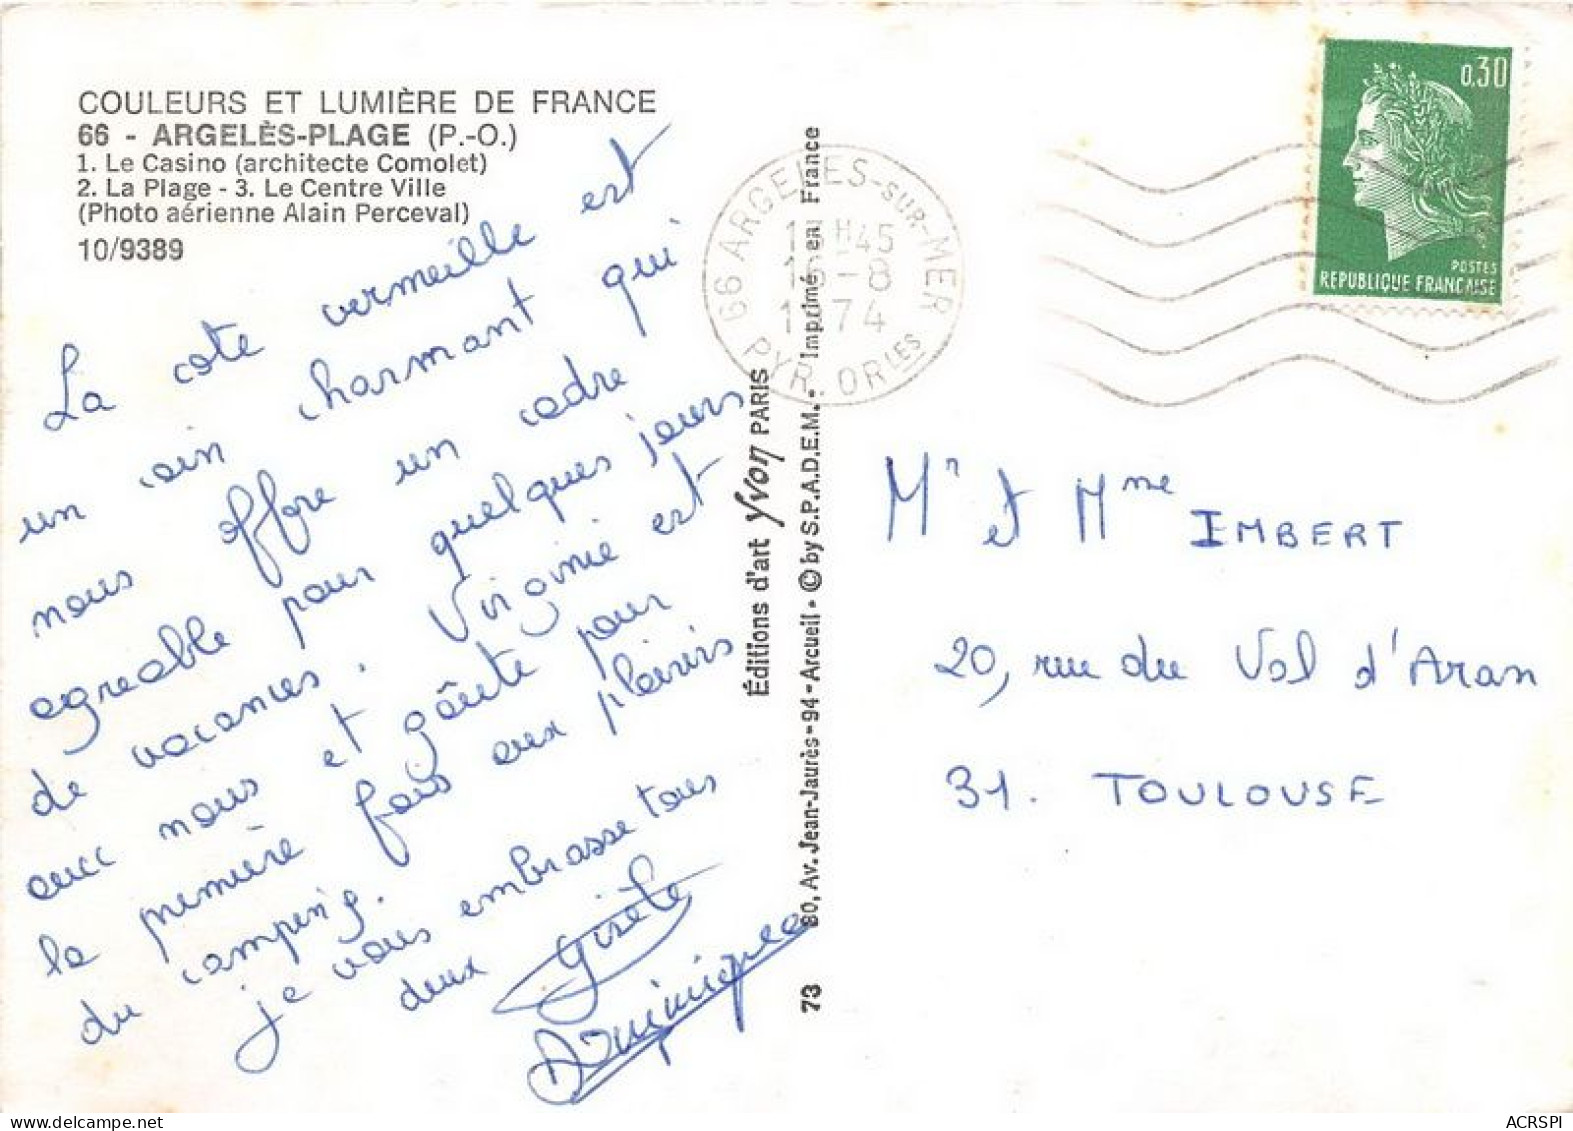 COULEURS ET LUMIÈRE DE FRANCE
66 - ARGELÈS-PLAGE (P.-O.)
1. Le Casino (architecte Comolet)
2. La Plage - 3. Le Centre Ville
(Photo aérienne Alain Perceval)
10/9389
La cote vermeille est
un coin charmant qui
nous offre un cadre
agreable pour quelques jours
de vacances. Virginie est
avec nous et goûte pour
la première fois aux plaisirs
du camping.
je vous embrasse tous
deux Gisèle
Dominique
Éditions d'art Yvon PARIS
80, Av. Jean-Jaurès - 94 - Arcueil - © by S.P.A.D.E.M. - Imprimé en France
73
66 ARGELES-SUR-MER
H45
-8
1974
PYR. ORLES
0,30
POSTES
REPUBLIQUE FRANCAISE
Mr et Mme IMBERT
20, rue du Val d'Aran
31. TOULOUSE
ACRSPI